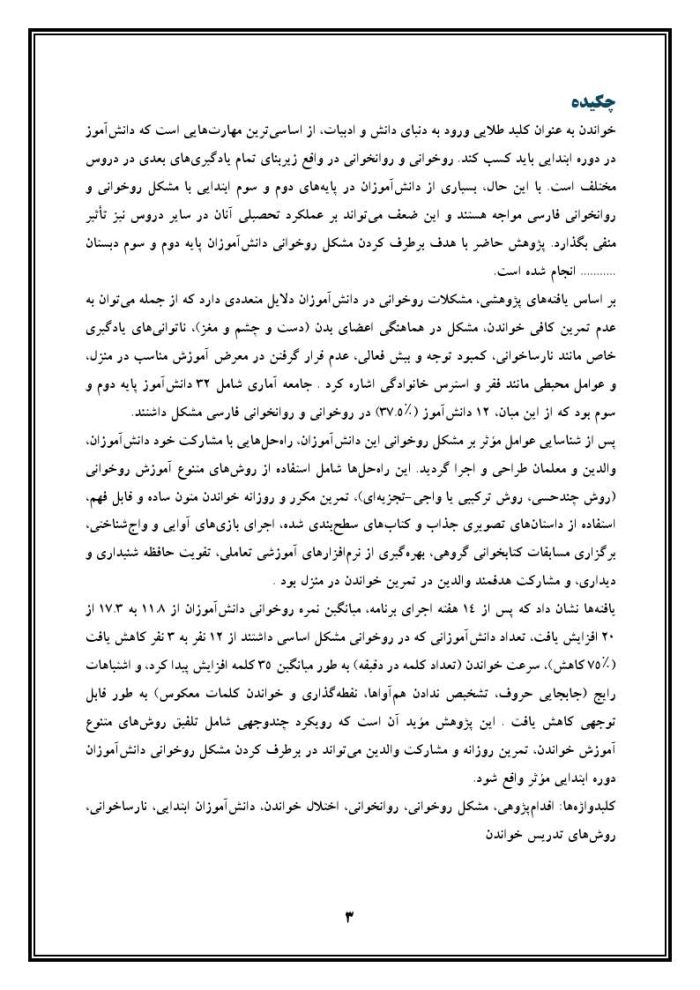 چکیده
خواندن به عنوان کلید طلایی ورود به دنیای دانش و ادبیات، از اساسی‌ترین مهارت‌هایی است که دانش‌آموز
در دوره ابتدایی باید کسب کند. روخوانی و روانخوانی در واقع زیربنای تمام یادگیری‌های بعدی در دروس
مختلف است. با این حال، بسیاری از دانش‌آموزان در پایه‌های دوم و سوم ابتدایی با مشکل روخوانی و
روانخوانی فارسی مواجه هستند و این ضعف می‌تواند بر عملکرد تحصیلی آنان در سایر دروس نیز تأثیر
منفی بگذارد. پژوهش حاضر با هدف برطرف کردن مشکل روخوانی دانش‌آموزان پایه دوم و سوم دبستان
........... انجام شده است.
بر اساس یافته‌های پژوهشی، مشکلات روخوانی در دانش‌آموزان دلایل متعددی دارد که از جمله می‌توان به
عدم تمرین کافی خواندن، مشکل در هماهنگی اعضای بدن (دست و چشم و مغز)، ناتوانی‌های یادگیری
خاص مانند نارساخوانی، کمبود توجه و بیش فعالی، عدم قرار گرفتن در معرض آموزش مناسب در منزل،
و عوامل محیطی مانند فقر و استرس خانوادگی اشاره کرد . جامعه آماری شامل ۳۲ دانش‌آموز پایه دوم و
سوم بود که از این میان، ۱۲ دانش‌آموز (۳۷.۵٪) در روخوانی و روانخوانی فارسی مشکل داشتند.
پس از شناسایی عوامل مؤثر بر مشکل روخوانی این دانش‌آموزان، راه‌حل‌هایی با مشارکت خود دانش‌آموزان،
والدین و معلمان طراحی و اجرا گردید. این راه‌حل‌ها شامل استفاده از روش‌های متنوع آموزش روخوانی
(روش چندحسی، روش ترکیبی یا واجی-تجزیه‌ای)، تمرین مکرر و روزانه خواندن متون ساده و قابل فهم،
استفاده از داستان‌های تصویری جذاب و کتاب‌های سطح‌بندی شده، اجرای بازی‌های آوایی و واج‌شناختی،
برگزاری مسابقات کتابخوانی گروهی، بهره‌گیری از نرم‌افزارهای آموزشی تعاملی، تقویت حافظه شنیداری و
دیداری، و مشارکت هدفمند والدین در تمرین خواندن در منزل بود .
یافته‌ها نشان داد که پس از ۱۴ هفته اجرای برنامه، میانگین نمره روخوانی دانش‌آموزان از ۱۱.۸ به ۱۷.۳ از
۲۰ افزایش یافت، تعداد دانش‌آموزانی که در روخوانی مشکل اساسی داشتند از ۱۲ نفر به ۳ نفر کاهش یافت
(۷۵٪ کاهش)، سرعت خواندن (تعداد کلمه در دقیقه) به طور میانگین ۳۵ کلمه افزایش پیدا کرد، و اشتباهات
رایج (جابجایی حروف، تشخیص ندادن هم‌آواها، نقطه‌گذاری و خواندن کلمات معکوس) به طور قابل
توجهی کاهش یافت . این پژوهش مؤید آن است که رویکرد چندوجهی شامل تلفیق روش‌های متنوع
آموزش خواندن، تمرین روزانه و مشارکت والدین می‌تواند در برطرف کردن مشکل روخوانی دانش‌آموزان
دوره ابتدایی مؤثر واقع شود.
کلیدواژه‌ها: اقدام‌پژوهی، مشکل روخوانی، روانخوانی، اختلال خواندن، دانش‌آموزان ابتدایی، نارساخوانی،
روش‌های تدریس خواندن
۳